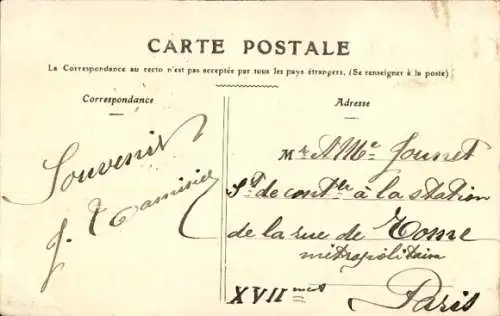 CARTE POSTALE
La Correspondance au recto n'est pas acceptée par tous les pays étrangers. (Se renseigner à la poste)
Correspondance
Souvenir
J. Tamisier
Adresse
Mr A Me Jounet
de contle à la station
de la rue de Rome
métropolitain
XVIIme
Paris